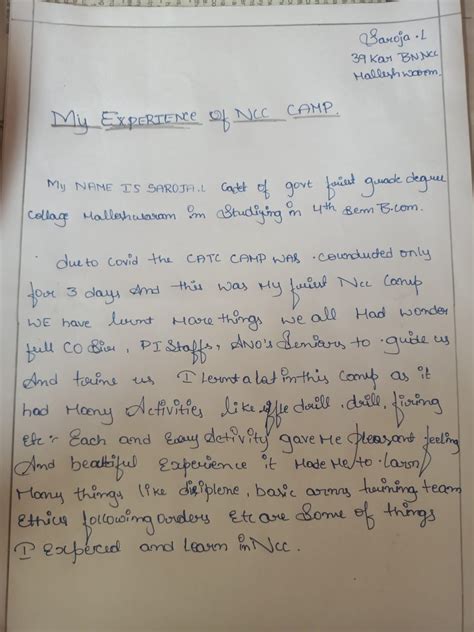 Saroja.L
39 Kar BN NCC
Malleshwaram.
My EXPERIENCE of NCC CAMP.
My NAME IS SAROJA.L Cadet of govt first grade degree
collage Malleshwaram im Studying in 4th Sem B.com.
due to covid the CATC CAMP WAS counducted only
for 3 days And this was My first NCC Camp
WE have lernt More things we all Had wonder
full CO Sir, PI Staffs, ANO's Seniors to guide us
And traine us I lernt a lot in this Camp as it
had Many Activities like drill, drill, firing
Etc:- Each and Every Activity gave Me pleasant feeling
And beatiful Experience it Made Me to learn
Many things like disiplene, basic arms training, team
Ethics following orders Etc are Some of things
I Expericed and learn in NCC.